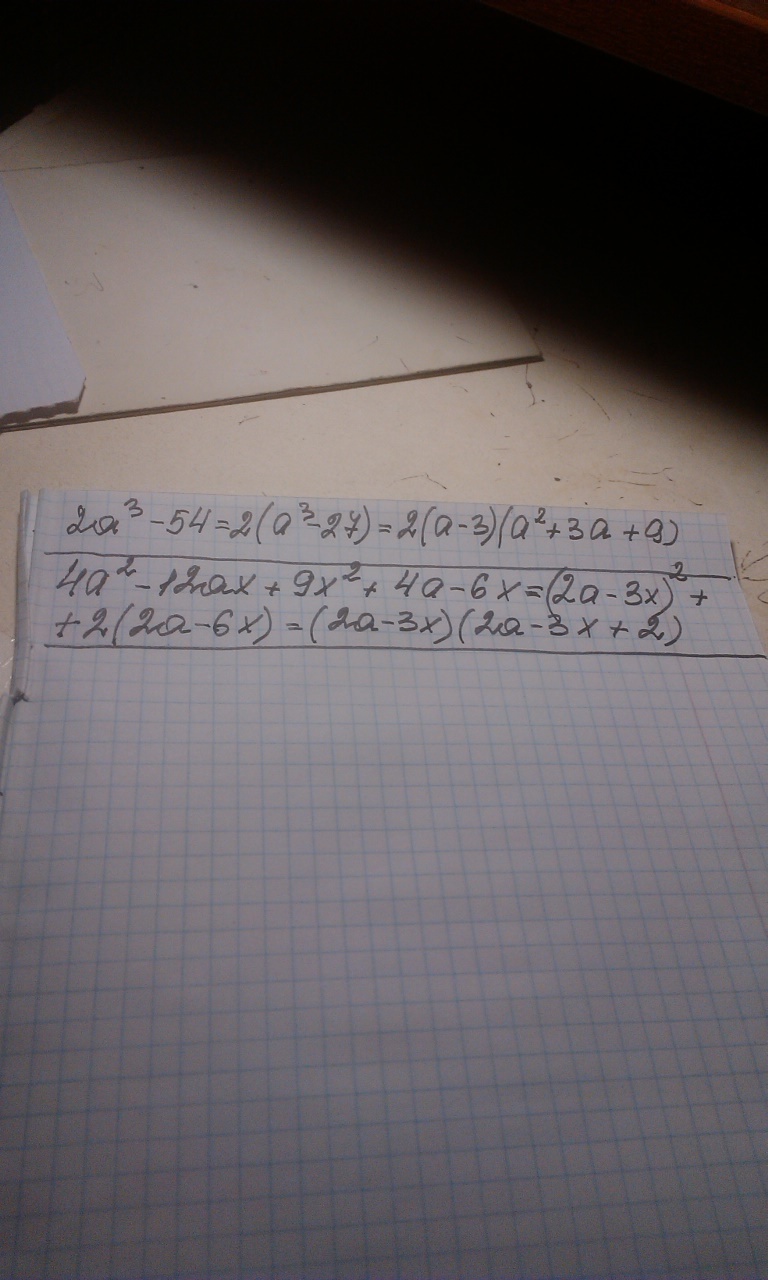 2a³-54=2(a³-27)=2(a-3)(a²+3a+9)
4a²-12ax+9x²+4a-6x=(2a-3x)²+
+2(2a-6x)=(2a-3x)(2a-3x+2)